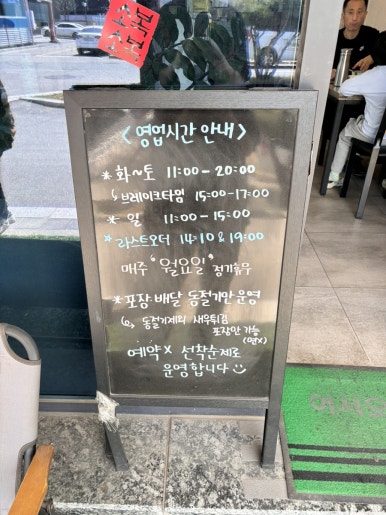 소복
소복
< 영업시간 안내 >
* 화~토 11:00-20:00
↳브레이크타임 15:00-17:00
* 일 11:00-15:00
* 라스트오더 14:10 & 19:00
매주 "월요일" 정기휴무
* 포장 배달 동절기만 운영
↳ 동절기제외 새우튀김
포장만 가능
(면X)
예약X 선착순제로
운영합니다
어서오